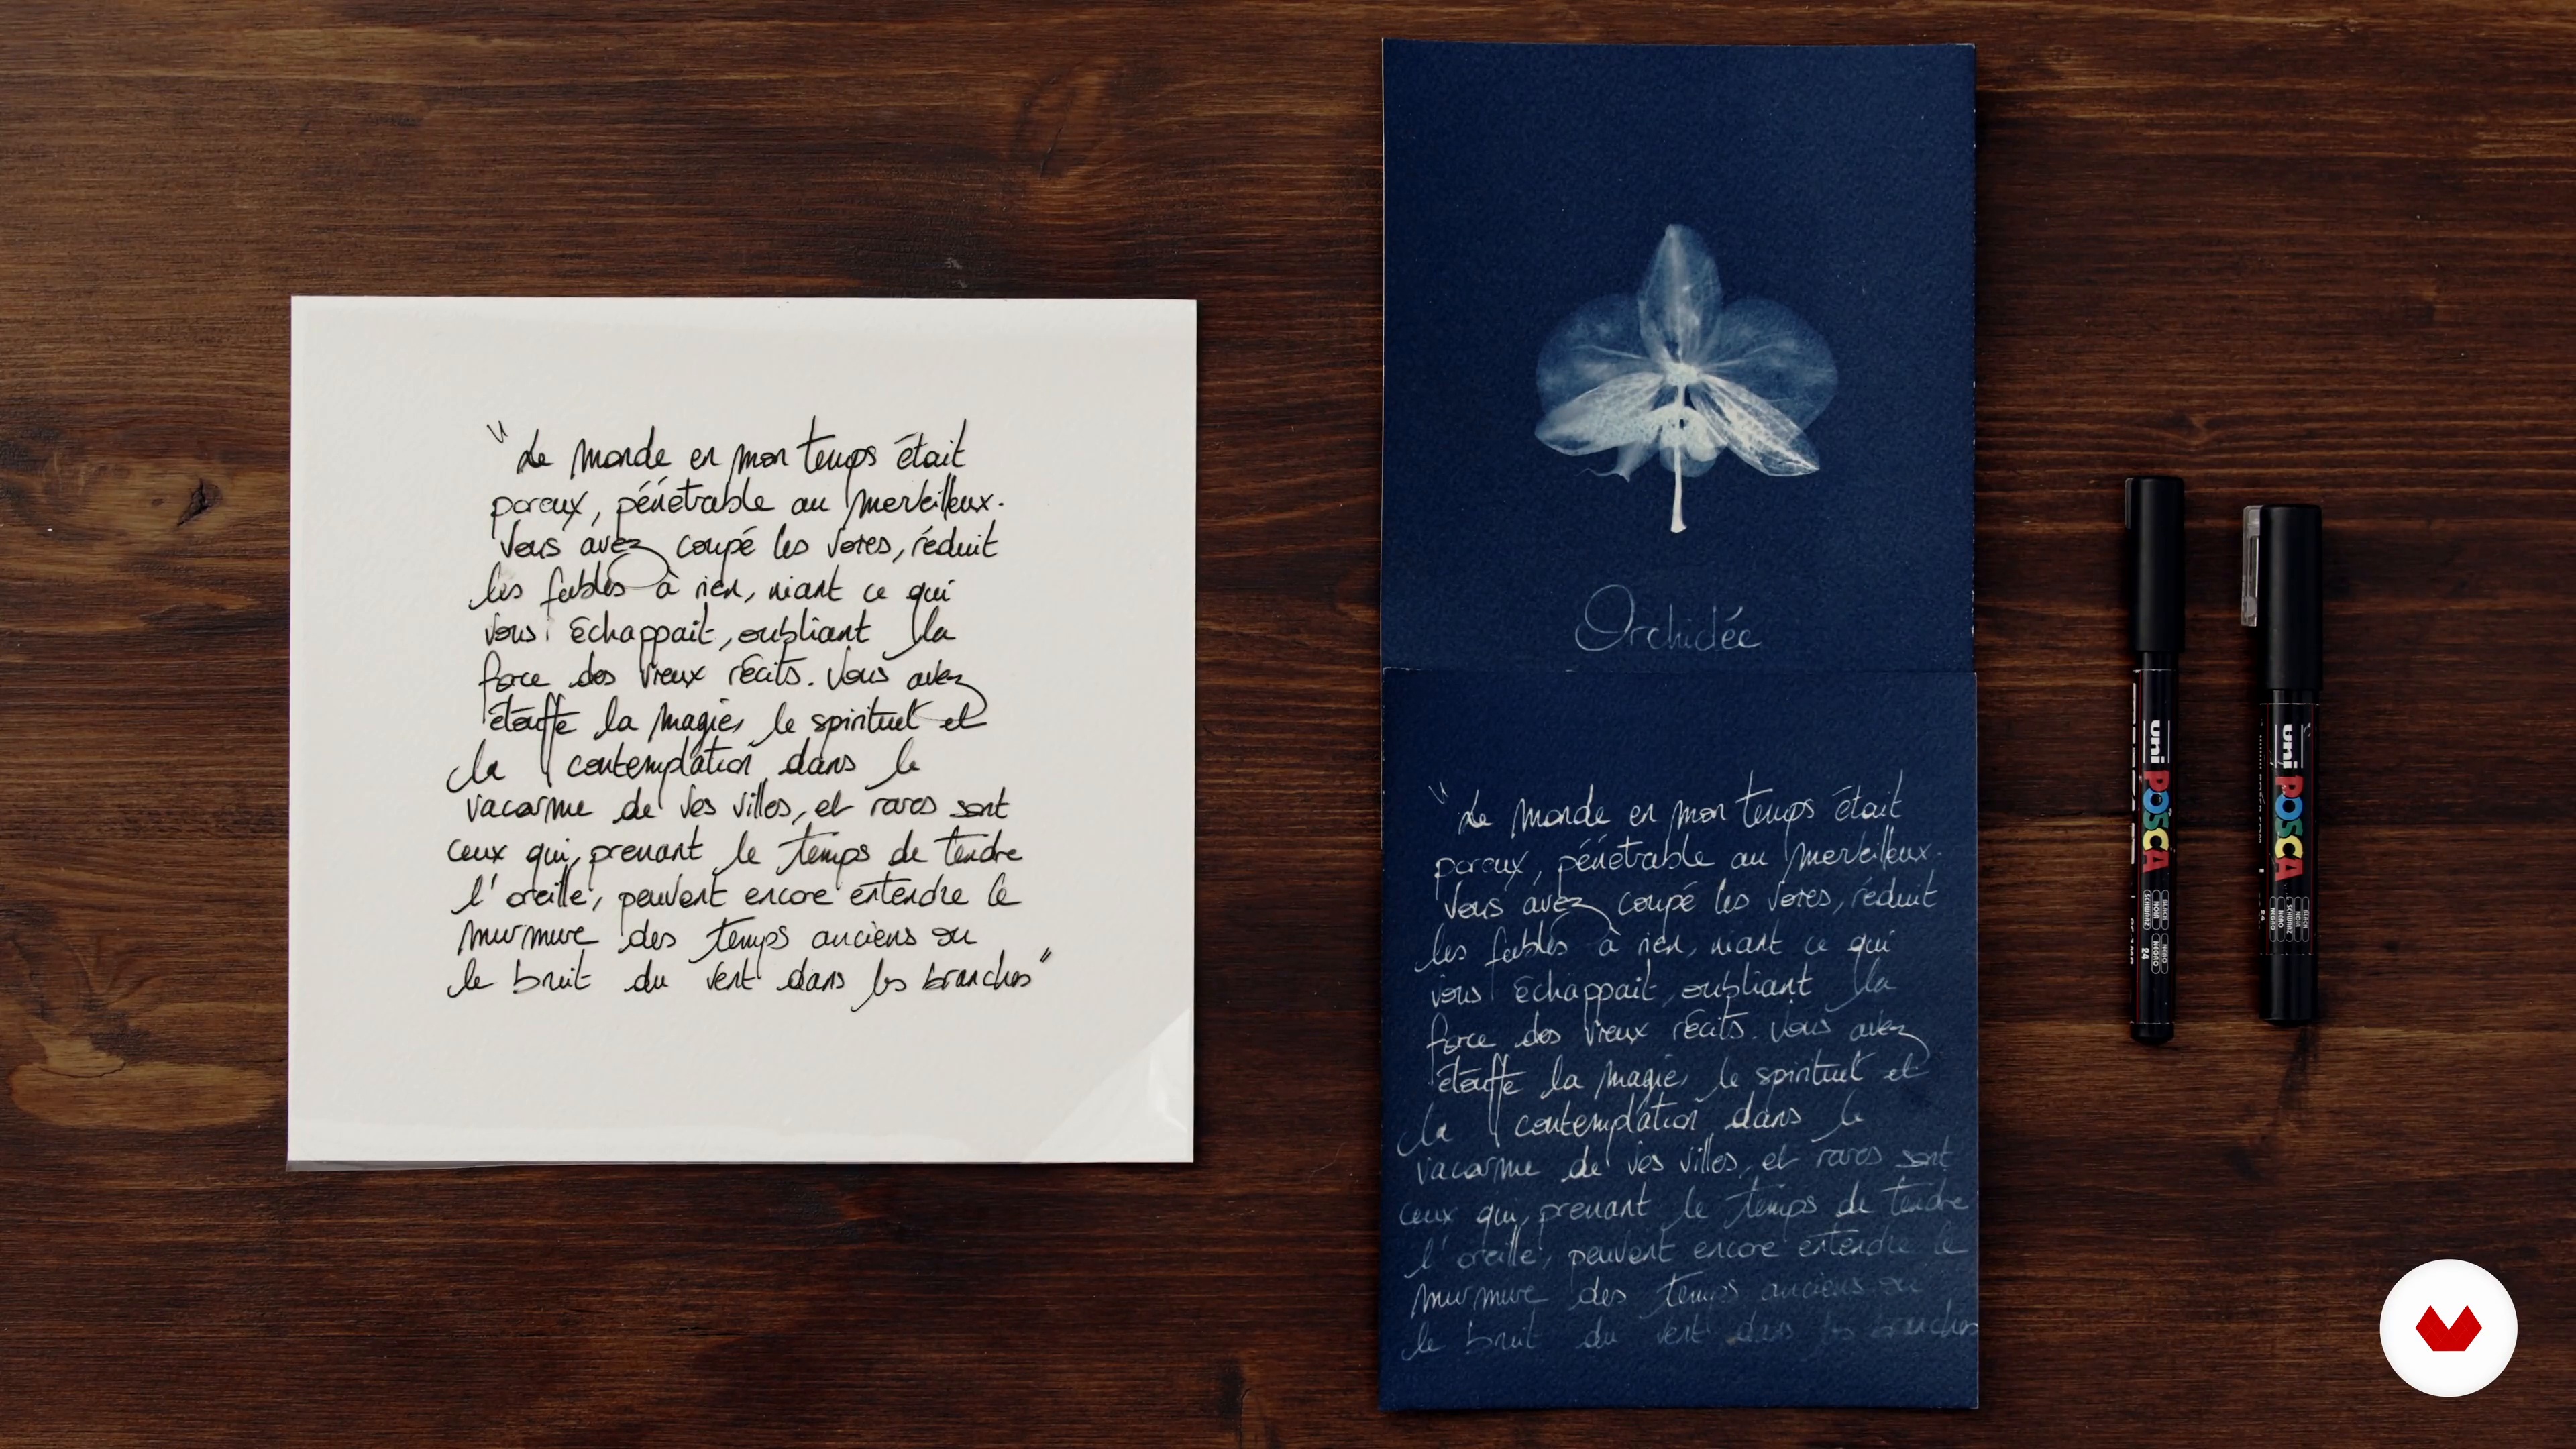 "Le monde en mon temps était
poreux, pénétrable au merveilleux.
Vous avez coupé les voies, réduit
les fables à rien, niant ce qui
vous échappait, oubliant la
force des vieux récits. Vous avez
étouffé la magie, le spirituel et
la contemplation dans le
vacarme de vos villes, et rares sont
ceux qui, prenant le temps de tendre
l'oreille, peuvent encore entendre le
murmure des temps anciens ou
le bruit du vent dans les branches"
Orchidée
"Le monde en mon temps était
poreux, pénétrable au merveilleux.
Vous avez coupé les voies, réduit
les fables à rien, niant ce qui
vous échappait, oubliant la
force des vieux récits. Vous avez
étouffé la magie, le spirituel et
la contemplation dans le
vacarme de vos villes, et rares sont
ceux qui, prenant le temps de tendre
l'oreille, peuvent encore entendre le
murmure des temps anciens ou
le bruit du vent dans les branches
uni POSCA
uni POSCA